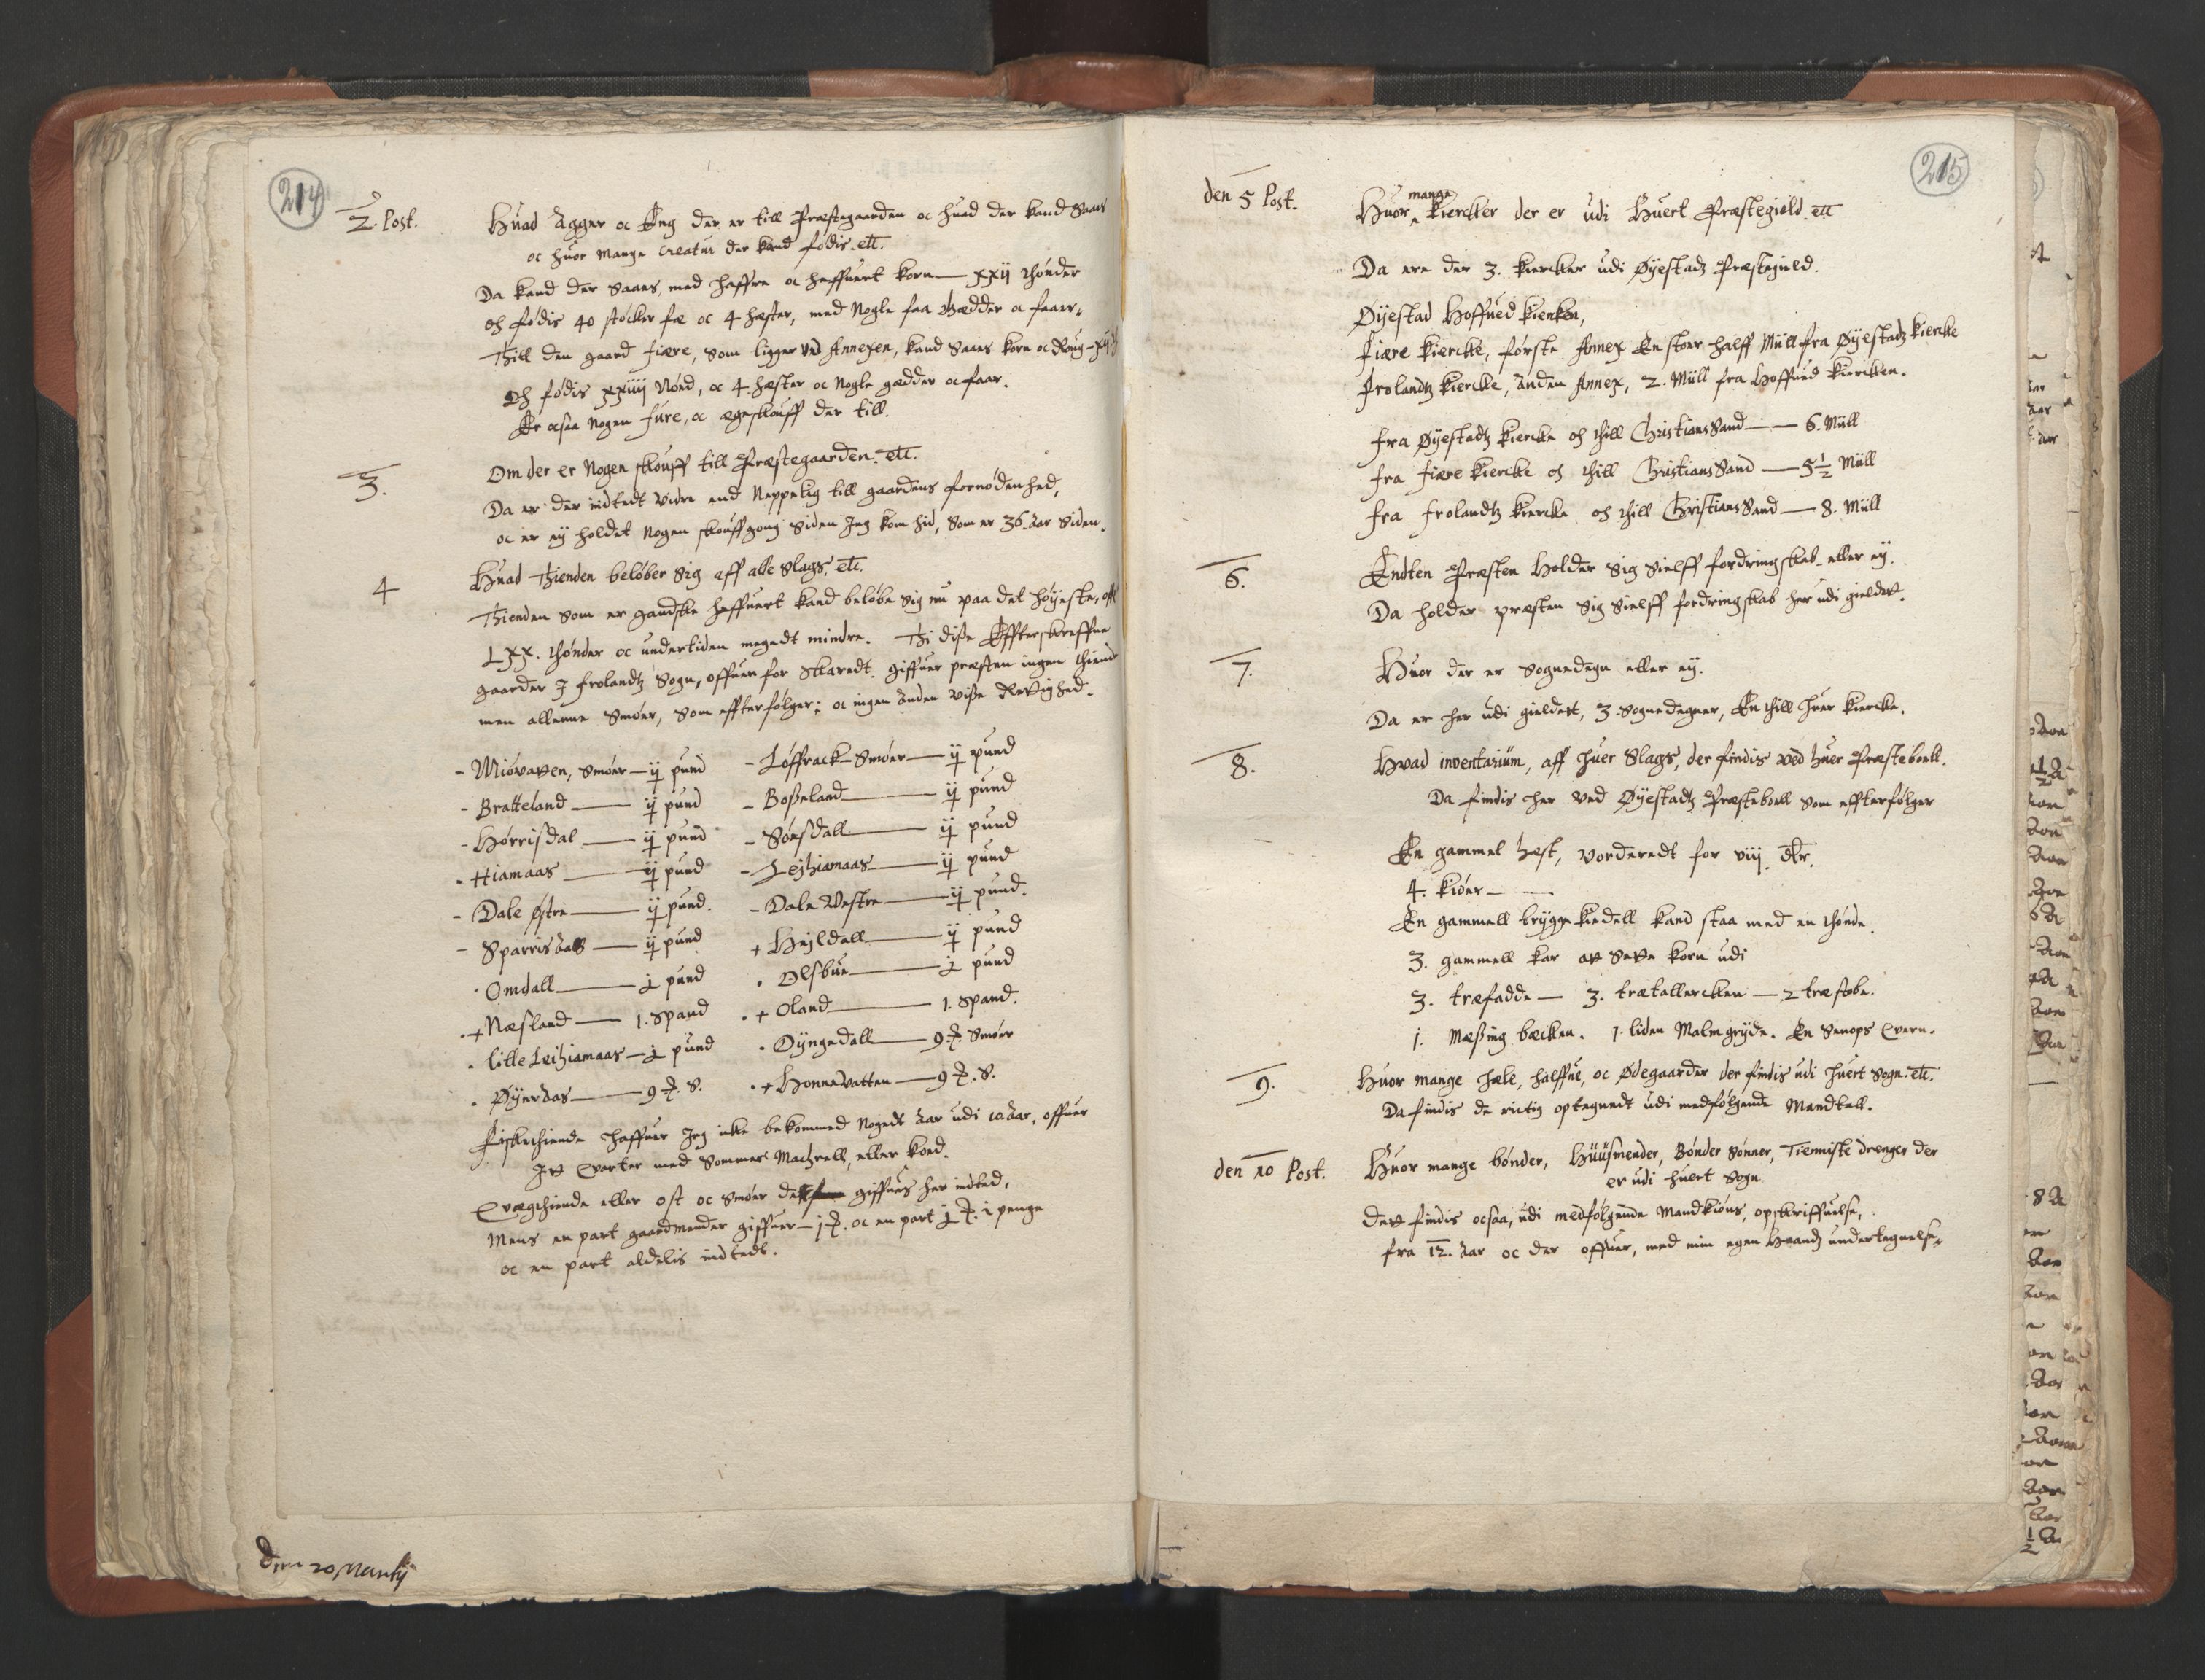 214
2. Post.
Huad Agger oc Eng der er till Præstegaarden oc huad der kand Saaes
oc huor mange Creatur der kand fødis. etc.
Da kand der Saaes, med haffre oc haffuert korn — xxij thønder
och fødis 40 støcker fæ oc 4 hæster, med Nogle faa giedder oc faar.
Till den gaard fiære, som ligger ved Annexen, kand Saaes korn oc Roug — xij
Och fødis xxiiij Nød, oc 4. hæster oc Nogle gædder oc faar.
Er ocsaa Nogen fure, oc ægeskouff der till.
3.
Om der er Nogen skouff till Præstegaarden. etc.
Da er der indtedt vidre end Neppelig till gaardens fornødenhed,
oc er eij holdet Nogen skouffgang siden Jeg kom hid, som er 36. aar siden.
4
Huad Thienden beløber Sig aff alle Slags. etc.
Thienden som er gandske haffuert kand beløbe sig nu paa det høijeste,
Lxx. thønder oc undertiden megedt mindre. Thi disse Effterskreffne
gaarder J frolandtz Sogn, offuen for skaredt. giffuer præsten ingen thiende
men allenne Smøer, som effterfølger; oc ingen anden visse Rettighed.
- Miøvaten, Smøer — ij pund - Løffrack - Smøer — ij pund
- Bratteland — ij pund - Bosseland — ij pund
- Hørrisdal — ij pund - Sønsdall — ij pund
- Hiamaas — ij pund - Leihiamaas — ij pund
- Dale østre — ij pund. - Dale Vestre — ij pund.
- Sparrisaas — ij pund + Heijldall — ij pund
. Omdall — j pund . Olsbue — j pund
. + Næsland — 1. Spand . + Oland — 1. Spand.
. litle Leihiamaas — j pund . Dyngedall — 9 ℔. Smøer
. Øynaas — 9 ℔. S. . + Honnevatten — 9 ℔. S.
Fiskethiende haffuer Jeg icke bekommed Nogedt aar udi 10 aar, offuer
Jtt qvarter med Sommer Machrell, eller koed.
Qvægthiende eller ost oc smøer giffues her indted,
Mens en part gaardmender giffuer — j ℔. oc en part j ℔. i penge
oc en part aldelis indtedt.
20 Martij
215
den 5 Post.
mange
Huor ‸ Kiercker der er udi Huert Præstegield. etc
Da ere der 3. kiercker udi Øyestadz Præstegield.
Øijestad Hoffued kiercken,
Fiære Kiercke, første Annex En stoer halff Miill fra Øijestadz kiercke
Frolandtz Kiercke, anden Annex, 2. Miill fra Hoffued kiercken.
fra Øyestadtz kiercke och thill Christians Sand — 6. Miill
fra fiære kiercke och thill Christians Sand — 5½ Miill
fra frolandtz kiercke och thill Christians Sand — 8. Miill
6.
Endten Præsten Holder Sig Sielff fordringskab eller eij.
Da holder præsten Sig Sielff fordringskab her udi gieldet.
7.
Huor der er Sognedegn eller eij.
Da er her udi gieldett, 3. Sognedegner, En thill huer kiercke.
8.
Hvad inventarium, aff huer Slags, der findis ved huer Præsteboell.
Da findis her ved Øyestadtz Præsteboell som effterfølger
En gammel hest, vorderedt for viij dlr.
4. kiøer —
En gammell brygge kiedell kand staa med en thønde.
3. gammell kar at sette korn udi
3. træfadde — 3. trætallercken — 2 træstobe.
1. Messing becken. 1. liden Malmgryde. En Senops Qvern.
9.
Huor mange heele, halffue, oc Ødegaarder der findis udi huert Sogn. etc.
Da findis de rictig optegnedt udi medfølgende Mandtall.
den 10 Post.
Huor mange bønder, Huusmender, Bønder Sønner, Tienniste drenger der
er udi huert Sogn.
Dett findis ocsaa, udi medfølgende Mandkiøns, opskriffuelse,
fra 12. aar oc der offuer, med min egen Haandz undertegnelse.